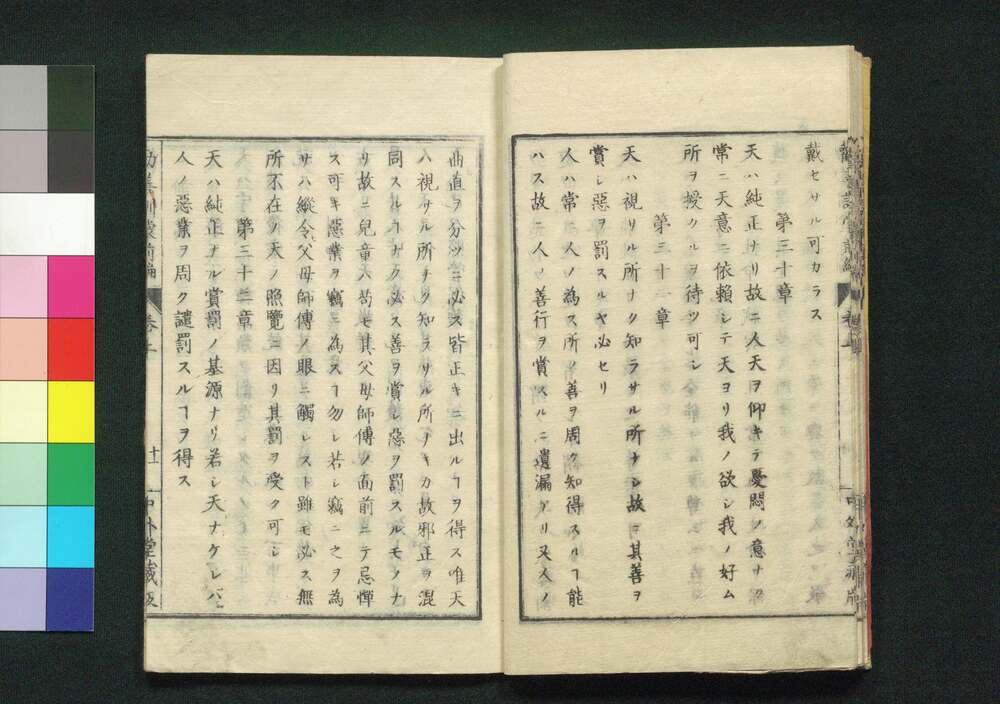 戴セサル可カラス
第三十章
天ハ純正ナリ故ニ人天ヲ仰キテ憂悶ノ意ナク
常ニ天意ニ依賴シテ天ヨリ我ノ欲シ我ノ好ム
所ヲ授クルヲ待ツ可シ
第三十一章
天ハ視サル所ナク知ラサル所ナシ故ニ其善ヲ
賞シ惡ヲ罰スルヤ必セリ
人ハ常ニ人ノ為ス所ノ善ヲ周ク知得スルヿ能
ハス故ニ人ノ善行ヲ賞スルニ遺漏アリ又人ノ
曲直ヲ分ツニ必ス皆正キニ出ルヿヲ得ス唯天
ハ視サル所ナク知ラサル所ナキカ故邪正ヲ混
同スルヿナク必ス善ヲ賞シ惡ヲ罰スルモノナ
リ故ニ兒童ノ苟モ其父母師傅ノ面前ニテ忌憚
ス可キ惡業ヲ竊ニ為スヿ勿レ若シ竊ニ之ヲ為
サハ縱令父母師傅ノ眼ニ觸レスト雖モ必ス無
所不在ノ天ノ照覽ニ因リ其罰ヲ受ク可シ
第三十二章
天ハ純正ナル賞罰ノ基源ナリ若シ天ナケレハ
人ノ惡業ヲ周ク譴罰スルヿヲ得ス
卷上
十一
中外堂藏版